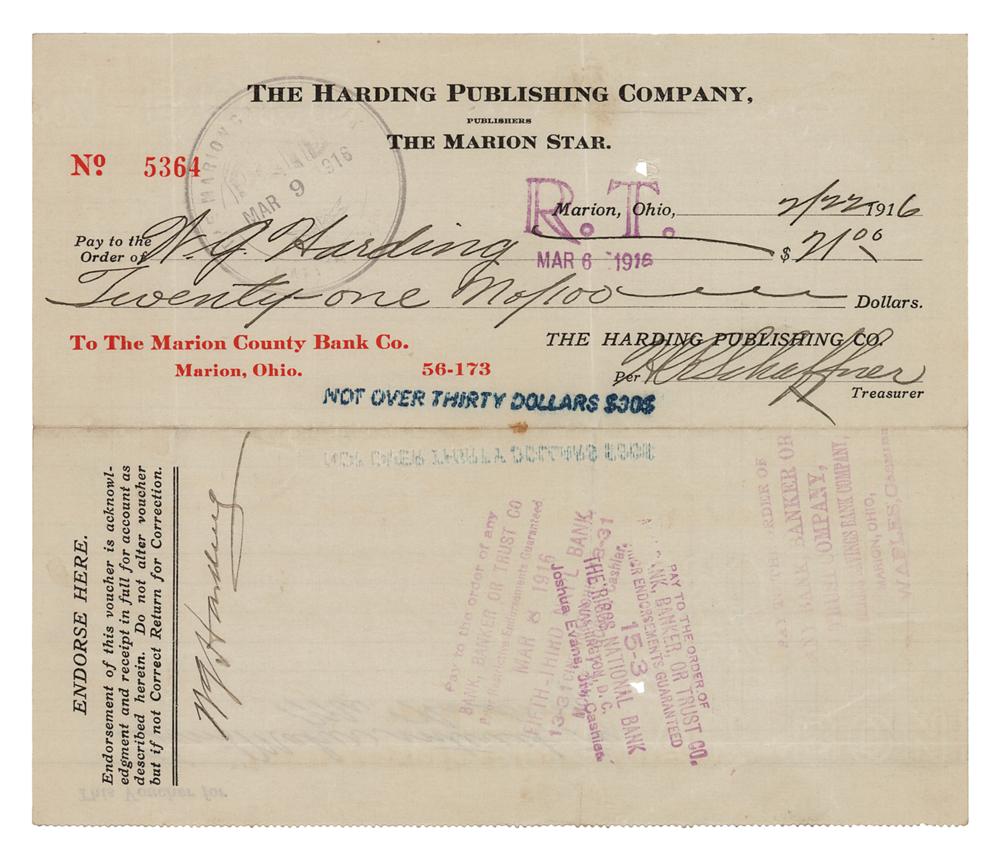 THE HARDING PUBLISHING COMPANY,
PUBLISHERS
THE MARION STAR.
Nº 5364
MARION
MAR 9 1916
R. T.
Marion, Ohio, 2/22 1916
Pay to the Order of W. G. Harding $ 21 00
MAR 6 1916
Twenty-one No/100 Dollars.
To The Marion County Bank Co.
Marion, Ohio. 56-173
THE HARDING PUBLISHING CO.
Per Schaffner
Treasurer
NOT OVER THIRTY DOLLARS $30$
ENDORSE HERE.
Endorsement of this voucher is acknowl-
edgment and receipt in full for account as
described herein. Do not alter voucher
but if not Correct Return for Correction.
W G Harding
Pay to the order of any
BANK, BANKER OR TRUST CO
Endorsements Guaranteed
MAR 8 1916
FIFTH-THIRD NATIONAL BANK
13-31
Cashier
PAY TO THE ORDER OF
BANK, BANKER, OR TRUST CO.
ENDORSEMENTS GUARANTEED
15-3
THE RIGGS NATIONAL BANK
WASHINGTON, D. C.
Joshua Evans, Jr., Cashier
ORDER OF
BANKER OR
COMPANY,
BANK COMPANY,
MARION, OHIO,
This Voucher for